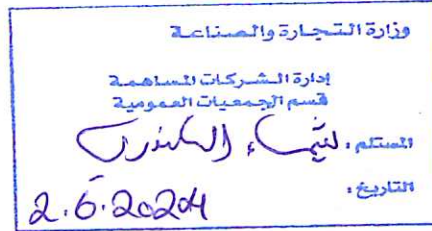 وزارة التجارة والصناعة
إدارة الشركات المساهمة
قسم الجمعيات العمومية
المستلم :
التاريخ :
2.6.2024